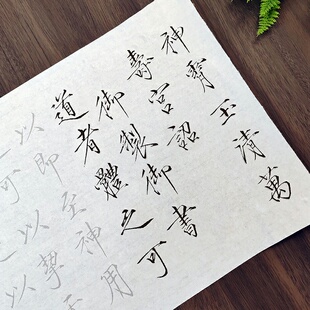 神霄玉清萬
壽宮詔
御製御書
道者體之可
以即至神用
可以挈
以